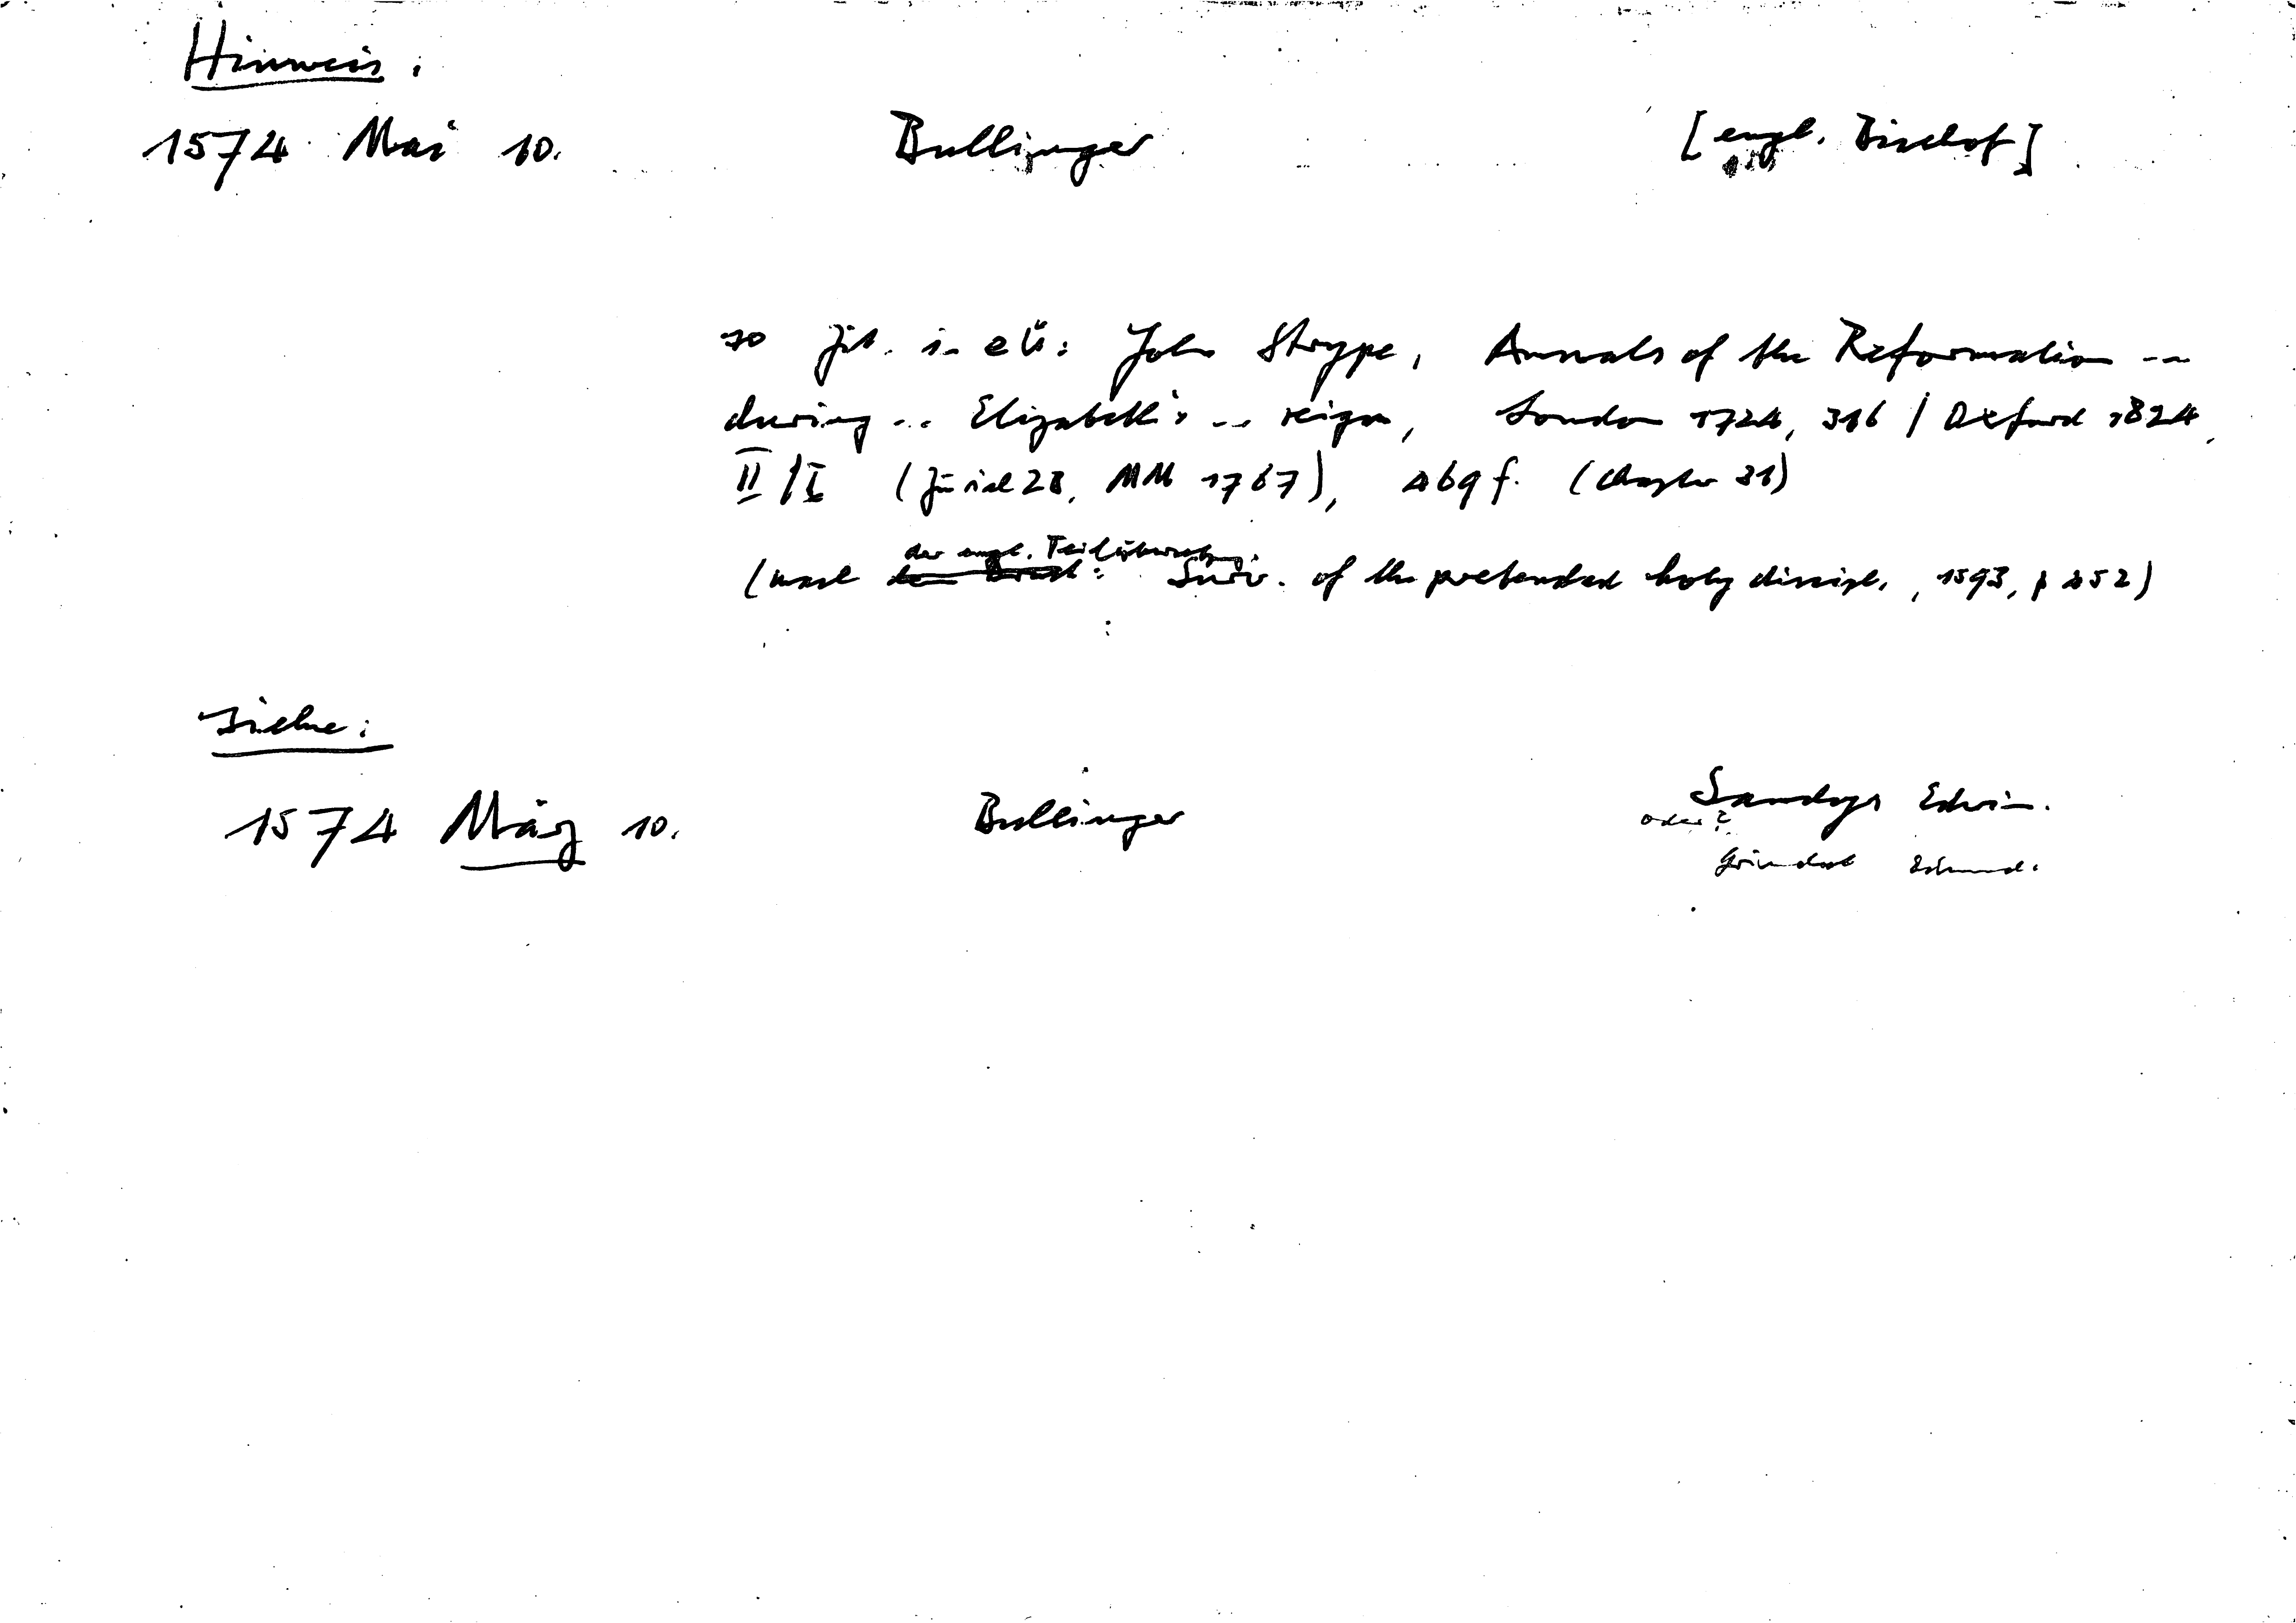 Hinweis:
1574 Mai 10. Bullinger [engl. Bischof]
so zit. in eÜ: John Strype, Annals of the Reformation ...
during ... Elizabeth's ... reign, London 1724, 316 / Oxford 1824,
II/I (Zürich ZB, MM 1767), 469 f. (Chapter 31)
der engl. Teilübersetzung
(nach dem Druck: Surv. of the pretended holy discipl., 1593, p 452)
Siehe:
1574 März 10. Bullinger Sandys Edwin.
oder?
Grindal Edmund.